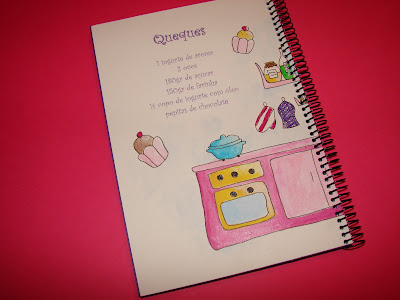 Queques
1 iogurte de aromas
3 ovos
180gr de açúcar
150gr de farinha
½ copo de iogurte com óleo
pepitas de chocolate